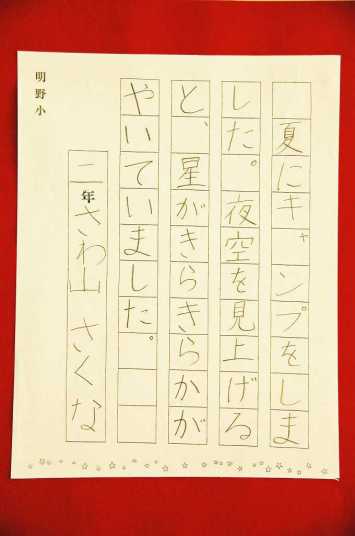 夏にキャンプをしま
した。夜空を見上げる
と、星がきらきらかが
やいていました。
二年 さわ山 さくな
明野小